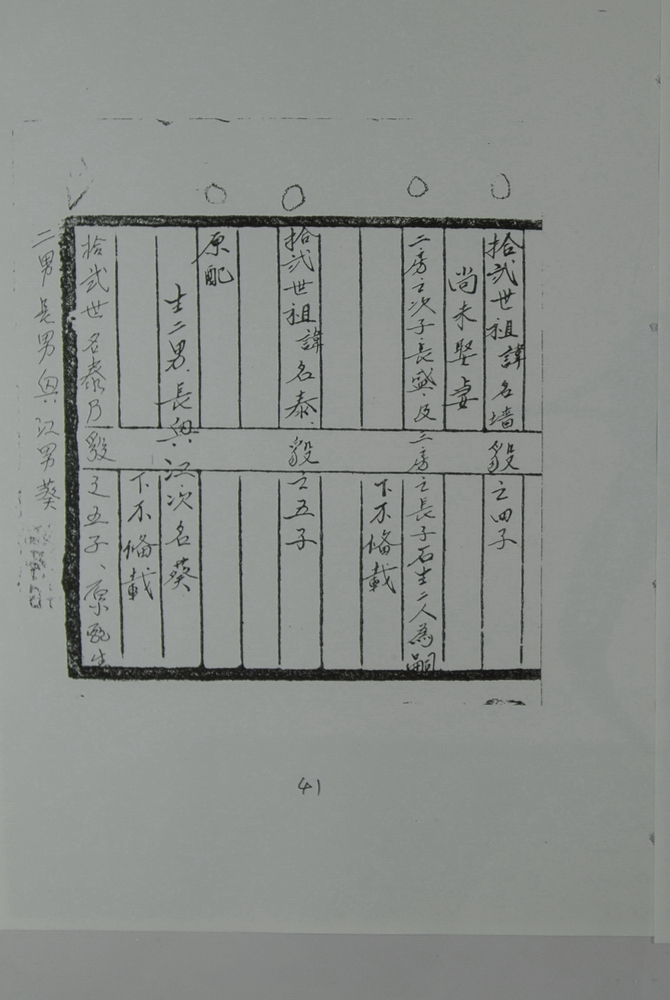 拾弍世祖諱名墙毅之四子
尚未娶妻
二房之次子長盛及三房之長子石生二人為嗣
下不俻載
拾弍世祖諱名泰毅之五子
原配
生二男長興江次名葵
下不俻載
拾弍世名泰乃毅之五子、原配生
二男長男興江男葵
41